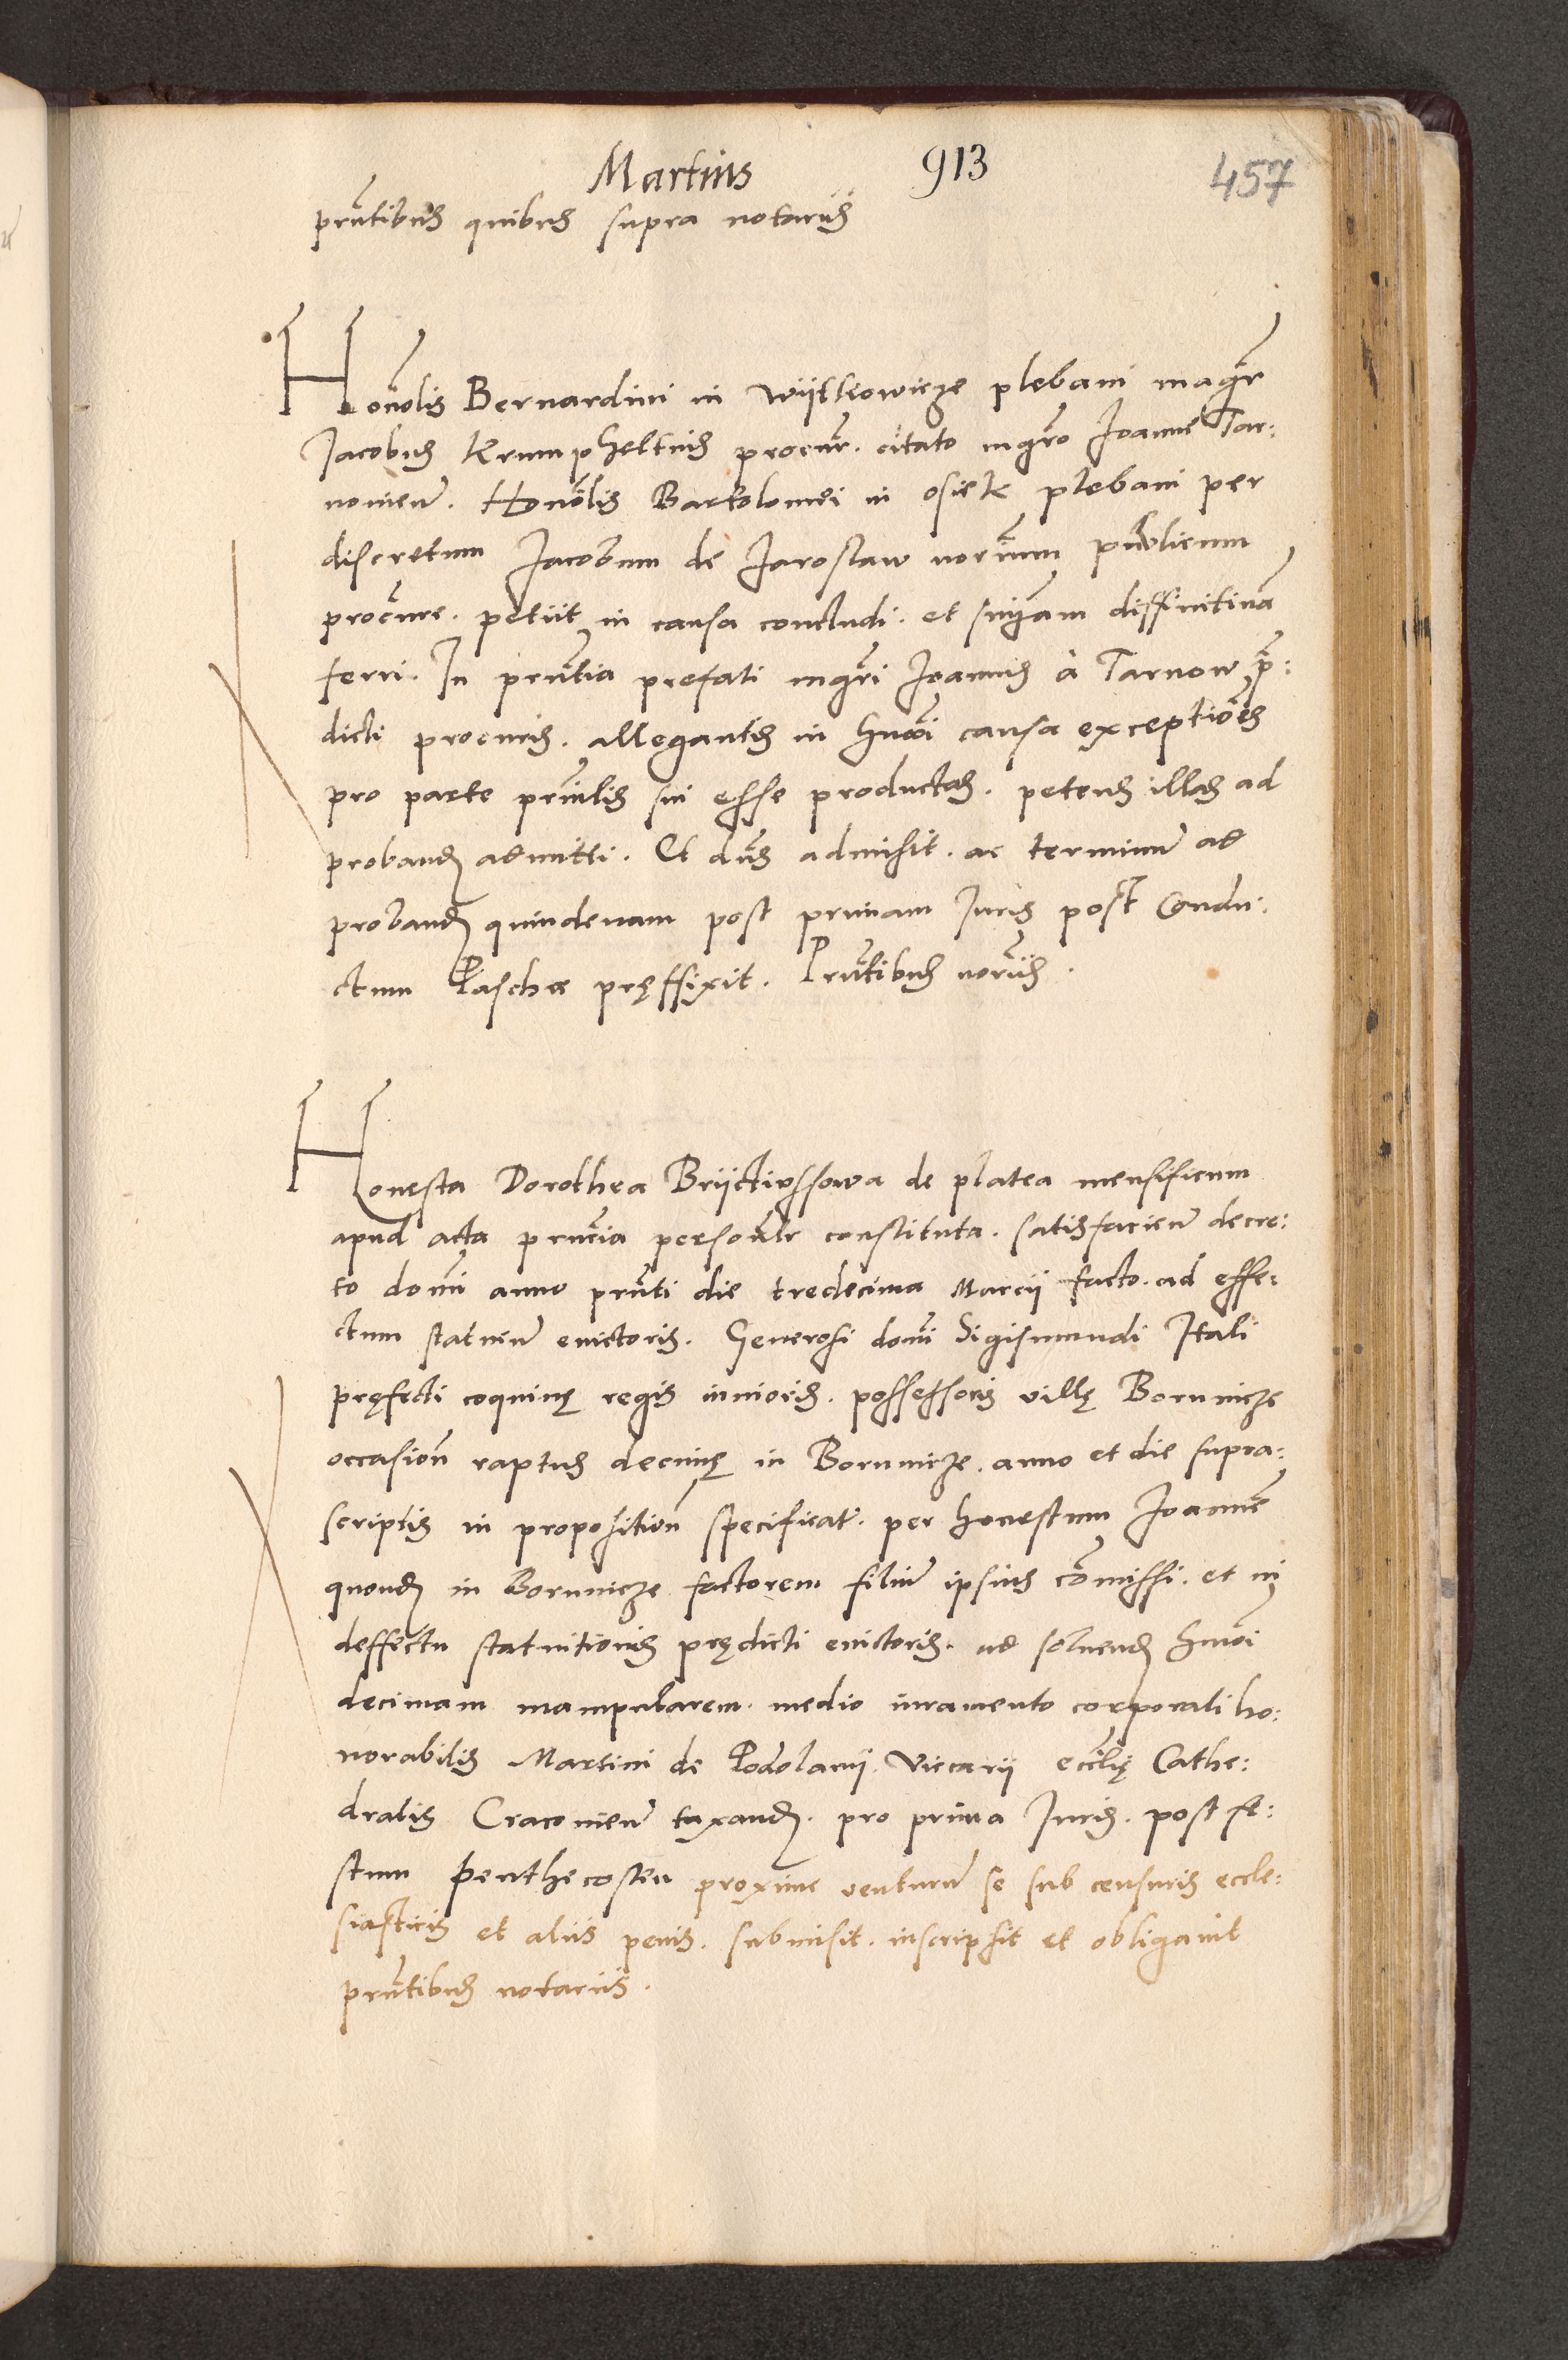 Martius 913 457
prntibus quibus supra notarus
Honolis Bernardini in Wijtkowicze plebani magr
Jacobus Krumpheltius procur. citato mgro Joanne Tar:
novien. Honolis Bartolomei in osiek plebani per
discretum Jacobum de Jaroslaw norium publicum
procure. petiit in causa concludi. et sniam diffinitiva
ferri. In prntia prefati mgri Joannis à Tarnow p:
dicti procuris. allegantis in hmoi causa exceptiões
pro parte prinlis sui esse productas. petens illas ad
proband admitti. Et dns admisit. ac terminu ad
proband quindenam post primam Juris post Condu:
ctum Paschæ pręffixit. Prntibus noriis.
Honesta Dorothea Brijctiussowa de platea mensificum
apud acta prncia personlr constituta. satisfacien decre:
to domi anno prnti die tredecima Marcij facto. ad effe:
ctum statuen evictoris. Generosi domi Sigismundi Itali
pręfecti coquinę regis iunioris. possessoris villę Borunicze
occasion raptus decimę in Borunicze. anno et die supra:
scriptis in proposition specificat. per honestum Joanne
quond in Borunicze factorem filiu ipsius comissi. et in
deffectu statuitionis prędicti evictoris. ad solvend hmoi
decimam manipularem. medio iuramento corporali ho:
norabilis Martini de Podolanij. Viccarij ecclię Cathe:
dralis Cracovien taxand. pro prima Juris. post fe:
stum Penthecosten proxime venturu se sub censuris eccle:
siasticis et aliis penis. submisit. inscripsit et obligavit
prntibus notariis.